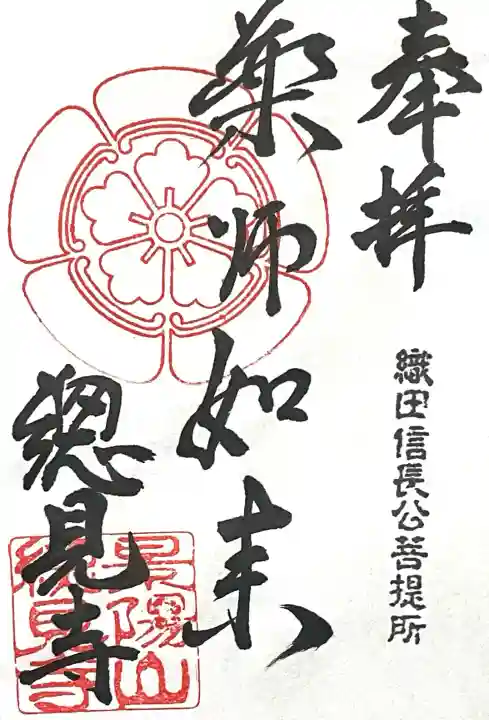 奉拝
織田信長公菩提所
薬师如来
總見寺
景陽山
總見寺